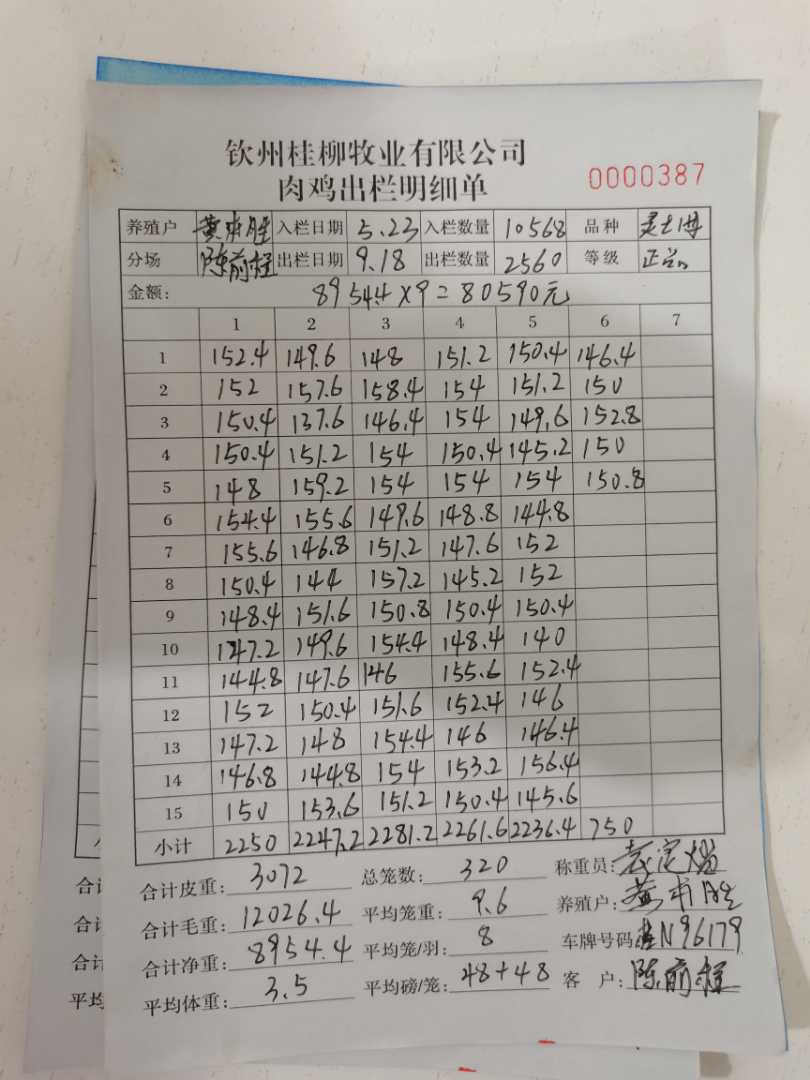 钦州桂柳牧业有限公司
肉鸡出栏明细单
0000387
养殖户 入栏日期 5.23 入栏数量 10568 品种
分场 陈前程 出栏日期 9.18 出栏数量 2560 等级 正品
金额: 8954.4×9=80590元
1 2 3 4 5 6 7
1 152.4 149.6 148 151.2 150.4 146.4
2 152 157.6 158.4 154 151.2 150
3 150.4 137.6 146.4 154 149.6 152.8
4 150.4 151.2 154 150.4 145.2 150
5 148 159.2 154 154 154 150.8
6 154.4 155.6 149.6 148.8 144.8
7 155.6 146.8 151.2 147.6 152
8 150.4 144 157.2 145.2 152
9 148.4 151.6 150.8 150.4 150.4
10 147.2 149.6 154.4 148.4 140
11 144.8 147.6 146 155.6 152.4
12 152 150.4 151.6 152.4 146
13 147.2 148 154.4 146 146.4
14 146.8 144.8 154 153.2 156.4
15 150 153.6 151.2 150.4 145.6
小计 2250 2247.2 2281.2 2261.6 2236.4 750
合计皮重: 3072 总笼数: 320 称重员:
合计毛重: 12026.4 平均笼重: 9.6 养殖户:
合计净重: 8954.4 平均笼/羽: 8 车牌号码: 桂N96179
平均体重: 3.5 平均磅/笼: 48+48 客户: 陈前程
合计
合计
合计
平均